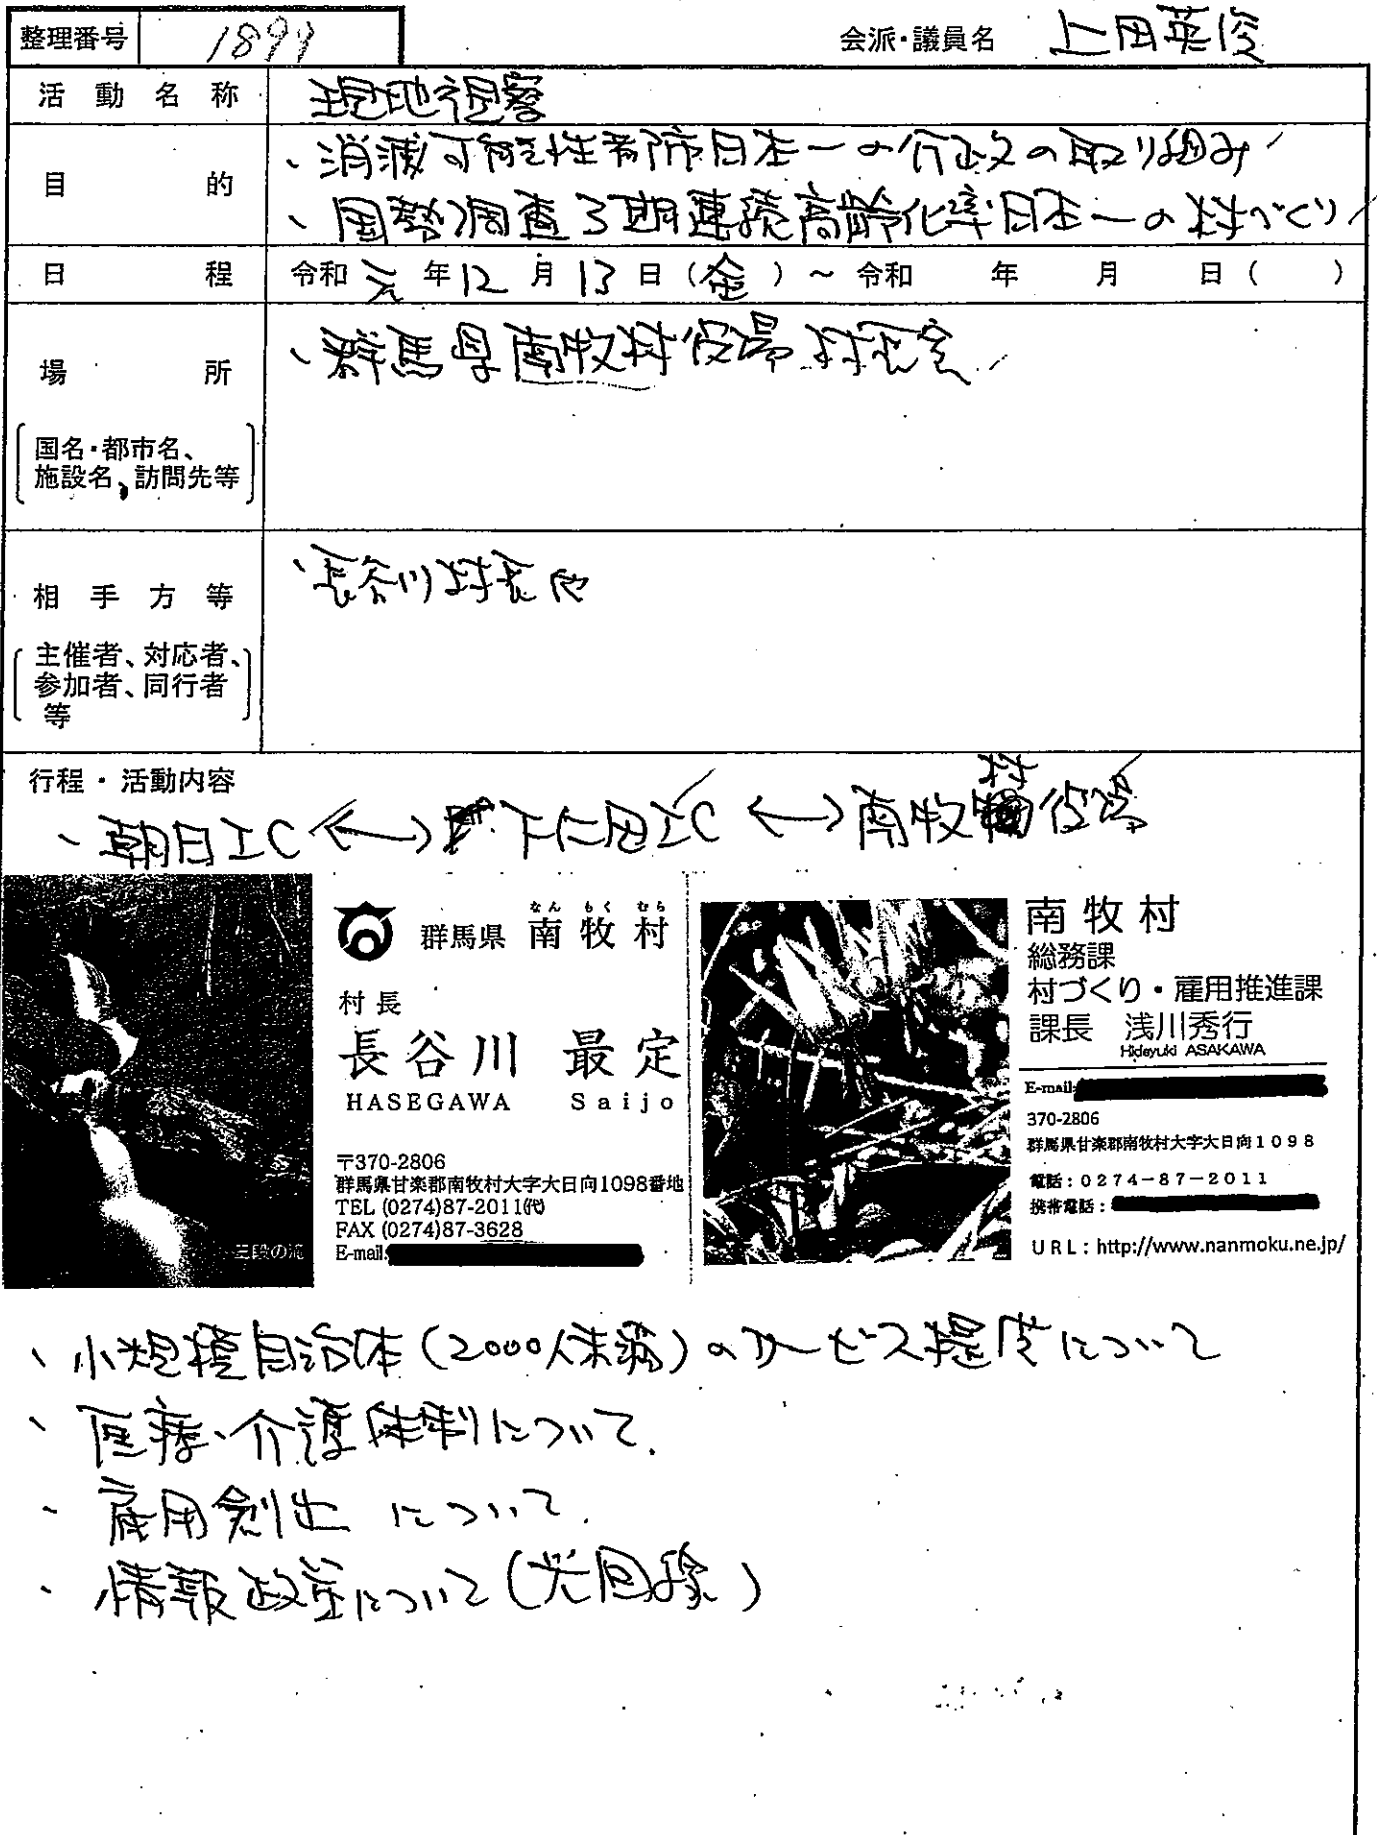 整理番号 1899 会派・議員名 上田英俊
活動名称 現地視察
目的 、消滅可能性都市日本一の行政の取り組み
、国勢調査3期連続高齢化率日本一の村づくり
日程 令和元年12月13日(金)~令和 年 月 日( )
場所 、群馬県南牧村役場 村長室
国名・都市名、
施設名、訪問先等
相手方等 、長谷川村長他
主催者、対応者、
参加者、同行者
等
行程・活動内容
、朝日IC ⟷ 下仁田IC ⟷ 南牧村役場
三段の滝
なんもくむら
群馬県 南牧村
村長
長谷川 最定
HASEGAWA Saijo
〒370-2806
群馬県甘楽郡南牧村大字大日向1098番地
TEL (0274)87-2011㈹
FAX (0274)87-3628
E-mail:
南牧村
総務課
村づくり・雇用推進課
課長 浅川秀行
Hideyuki ASAKAWA
E-mail:
370-2806
群馬県甘楽郡南牧村大字大日向1098
電話:0274-87-2011
携帯電話:
URL:http://www.nanmoku.ne.jp/
、小規模自治体(2000人未満)のサービス提供について
、医療、介護体制について.
、雇用創出 について.
、情報政策について(光回線)